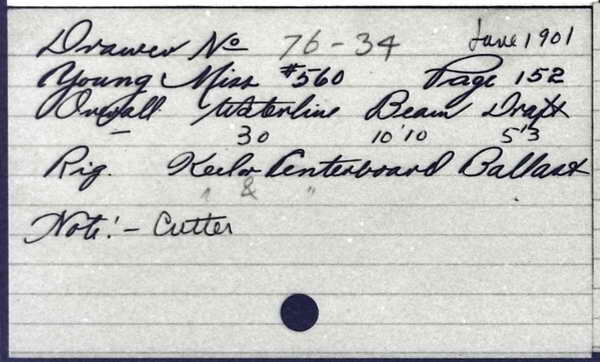 Drawer No 76-34 June 1901
Young Miss #560 Page 152
Overall Waterline Beam Draft
- 30 10'10 5'3
Rig. Keel or Centerboard Ballast
" & "
Note:- Cutter